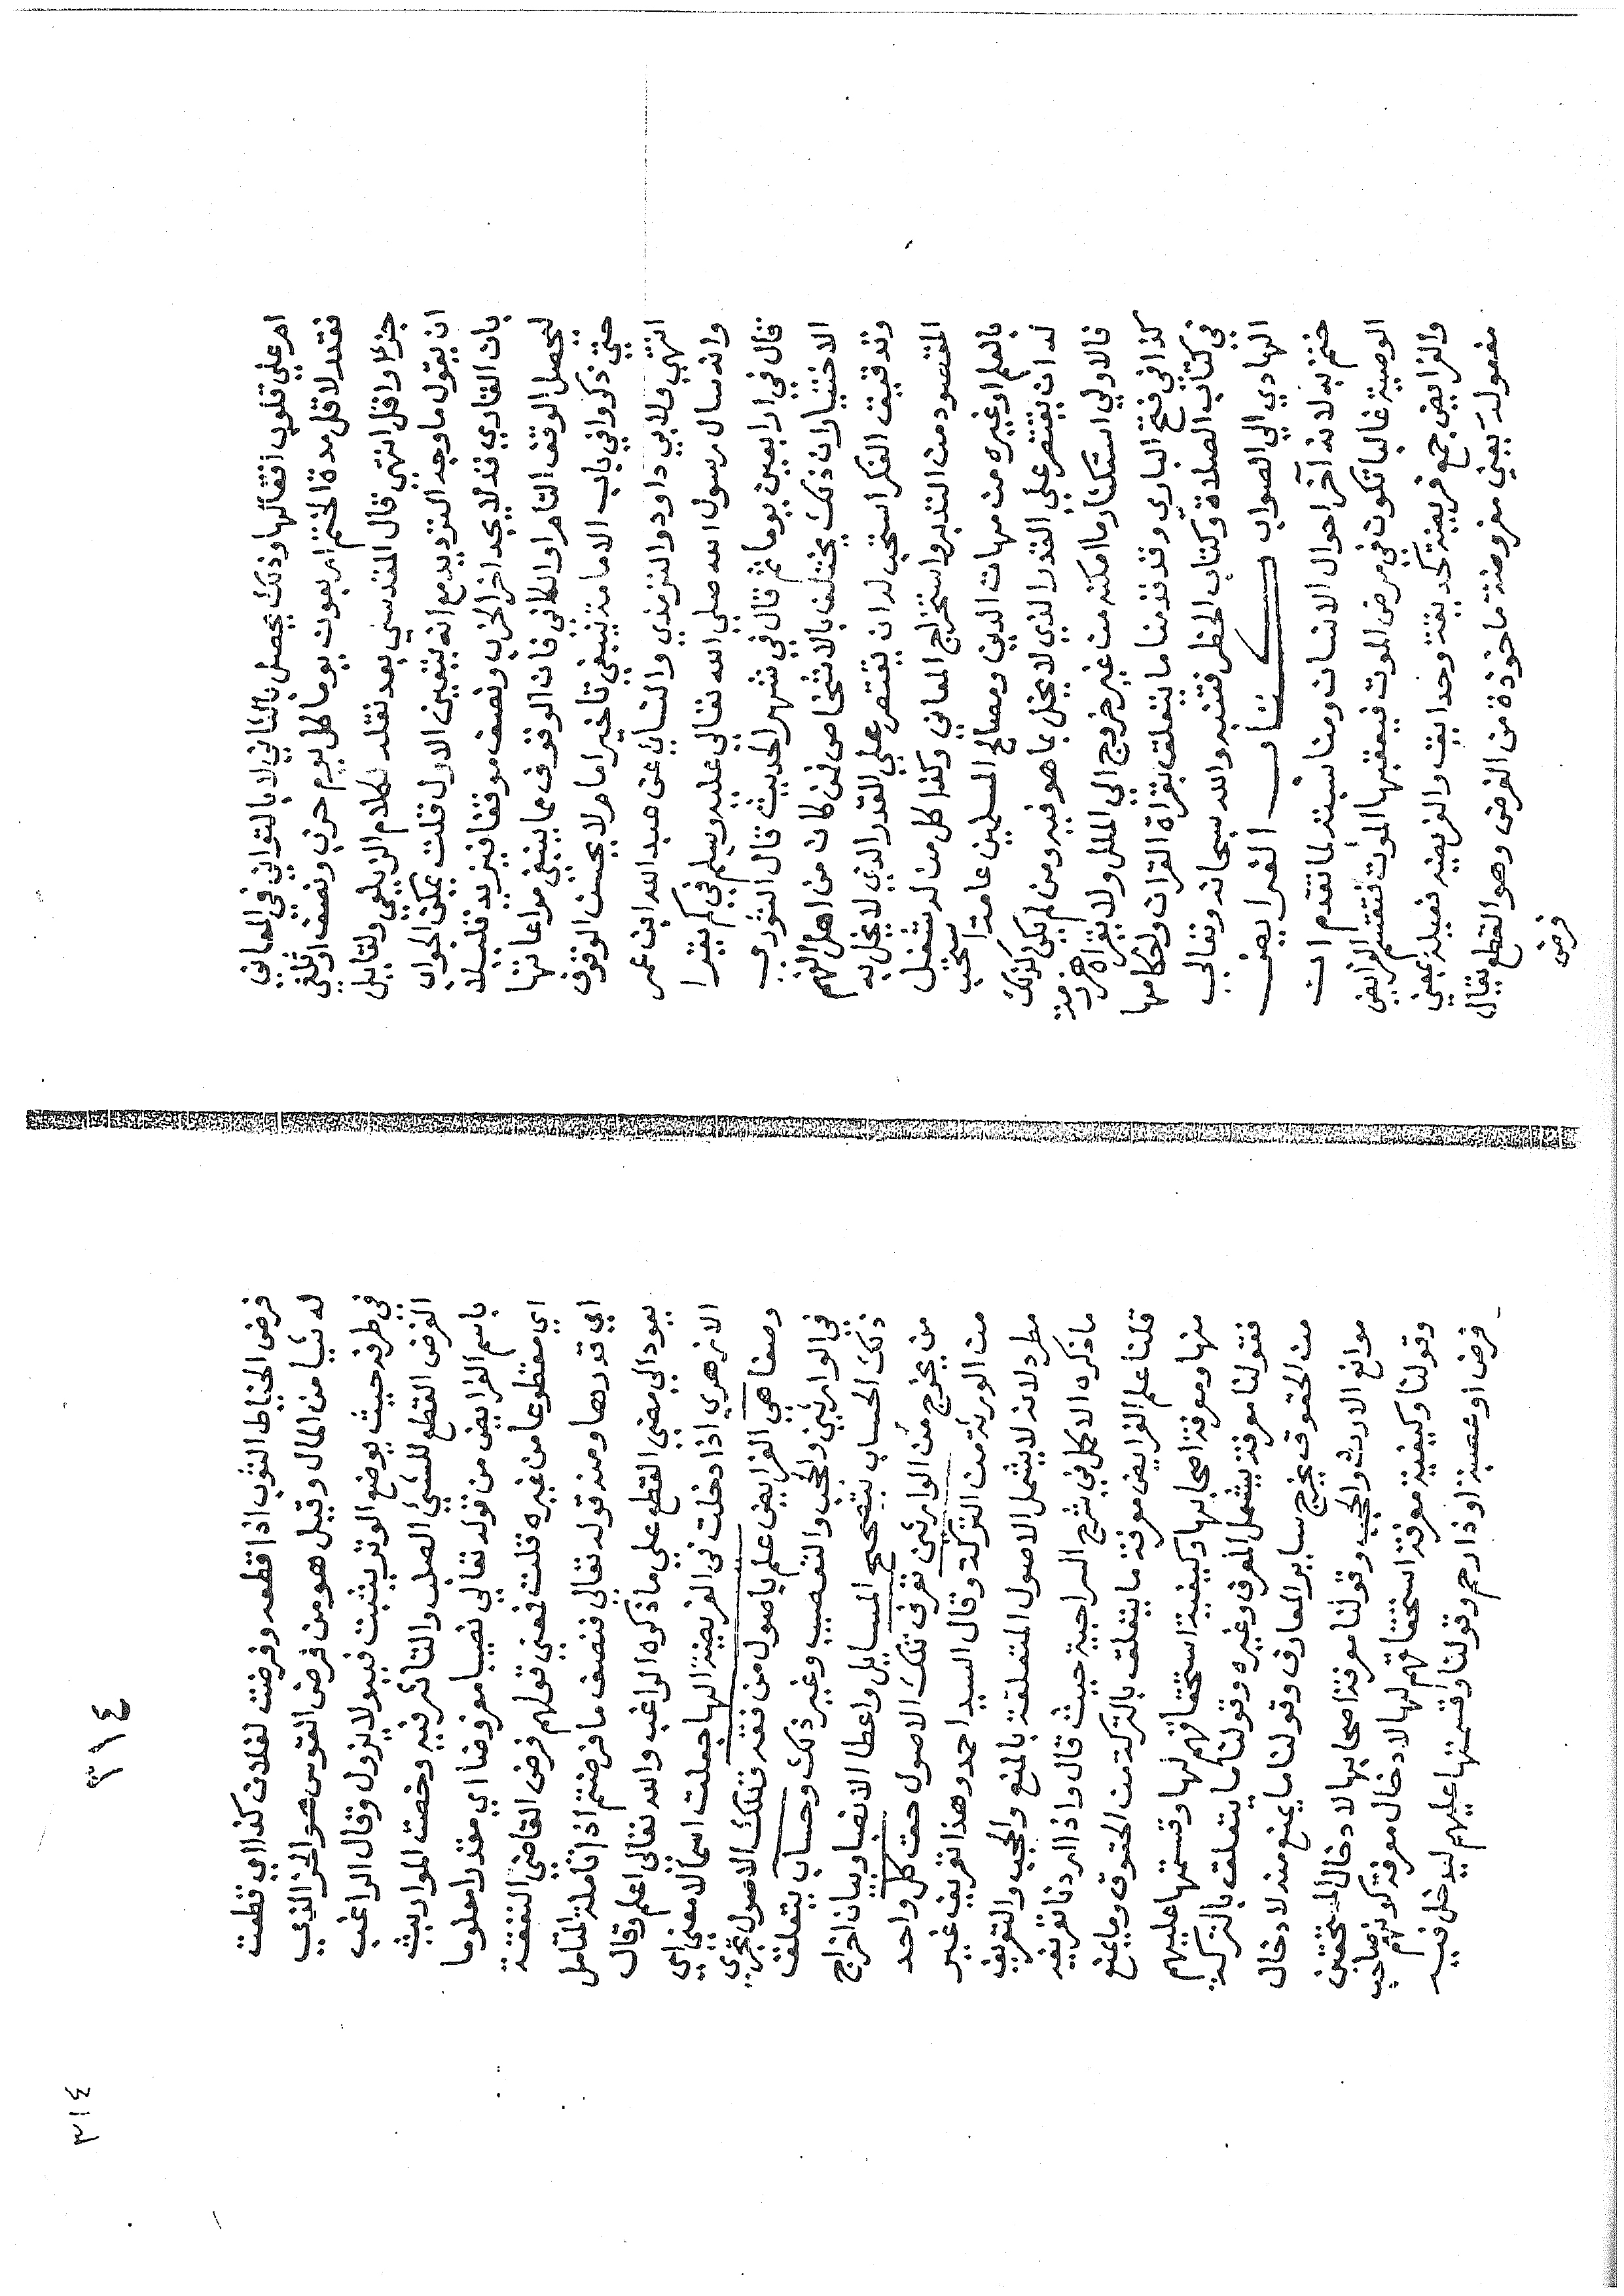 ام علي قلوب اقفالها وذلك يحصل بالتاني لا بالتواني في المعاني
فقدر لاقل مدة الختم اربعون يوما كل يوم حزب ونصف او ثلثي
حزب واقل انتهي قال المقدسي بعد نقله لكلام الزيلعي ولقايل
ان يقول ما وجه الترديد مع انه يتعين الاول قلت يمكن الجواب
بان القاري قد لا يجد اخر الحزب ونصف موقفا فيزيد قليلا
ليحصل الوقف التام او الكافي فان الوقوف مما ينبغي مراعاتها
حتي ذكروا في باب الامامة ينبغي تاخير امام لا يحسن الوقوف
انتهي ولابي داود والترمذي والنساي عن عبد الله ابن عمر
وانه سال رسول الله صلي الله تعالي عليه وسلم في كم يقرا
قال في اربعين يوما ثم قال في شهر الحديث قال النووي
الاختيار ان ذلك يختلف بالاشخاص فمن كان من اهل الفهم
وتدقيق الفكر استحب له ان يقتصر علي القدر الذي لا يخل به
المقصود من التدبر واستخراج المعاني وكذا كل من له شغل
بالعلم او غيره من مهمات الدين ومصالح المسلمين عامة استحب
له ان يقتصر علي القدر الذي لا يخل بما هو فيه ومن لم يكن كذلك
فالاولي استكثار ما امكنه من غير خروج الي الملل ولا يقراه هذرمة
كذا في فتح الباري وقد قدمنا ما يتعلق بقراة القران واحكامها
في كتاب الصلاة وكتاب الحظر فتنبه والله سبحانه وتعالي
الهادي الي الصواب كتاب الفرايض
ختم به لانه آخر احوال الانسان ومناسبته لما تقدم ان
الوصية غالبا تكون في مرض الموت فيعقبها الموت فتقسم الفرايض
والفرايض جمع فريضة كحديقة وحدايق والفريضه فعيلة بمعني
مفعولة بمعني مفروضة ماخوذة من الفرض وهو القطع يقال
فرض
٣١٤
٣١٤
فرض الخياط الثوب اذا قطعه وفرضت لفلان كذا اي قطعت
له شيا من المال وقيل هو من فرض القوس هو الحز الذي
في طرفه حيث يوضع الوتر يثبت فيه ولا يزول وقال الراغب
الفرض القطع للشي الصلب والتاثر فيه وخصت المواريث
باسم الفرايض من قوله تعالي نصيبا مفروضا اي مقدرا معلوما
اي مقطوعا من غيره قلت فمعني قولهم فرض القاضي النفقة
اي قدرها ومنه قوله تعالي فنصف ما فرضتم اذا تامله المتامل
يعود الي معني القطع علي ما ذكره الراغب والله تعالي اعلم وقال
الازهري اذا دخلت في الفريضة الها جعلت اسما لا معني اي
وصفا هي الفرايض علم باصول من فقه فتلك الاصول تجري
في الوارثين والحجب والتعصيب وغير ذلك وحساب يتعلق
ذلك الحساب بتصحيح المسايل واعطا الانصبا وبيان اخراج
من يخرج من الوارثين تعرف تلك الاصول حق كل واحد
من الورثة من التركة وقال السيد احمد وهذا تعريف غير
مطرد لانه لا يشمل الاصول المتعلقة بالمنع والحجب والتعريف
ما ذكره الاكمل في شرح السراجية حيث قال واذا اردنا تعريفه
قلنا علم الفرايض معرفة ما يتعلق بالتركة من الحقوق وما يمنع
منها ومعرفة اصحابها وكيفية استحقاقهم لها وقسمتها عليهم
فقولنا معرفة يشمل المعرف وغيره وقولنا ما يتعلق بالتركة
من الحقوق يخرج ساير المعارف وقولنا ما يمنع منه لادخال
موانع الارث والحجب وقولنا معرفة اصحابها لادخال المستحقين
وقولنا وكيفية معرفة استحقاقهم لها لادخال معرفة كونهم صاحب
فرض او عصبة او ذا رحم وقولنا وقسمتها عليهم ليدخل فيه